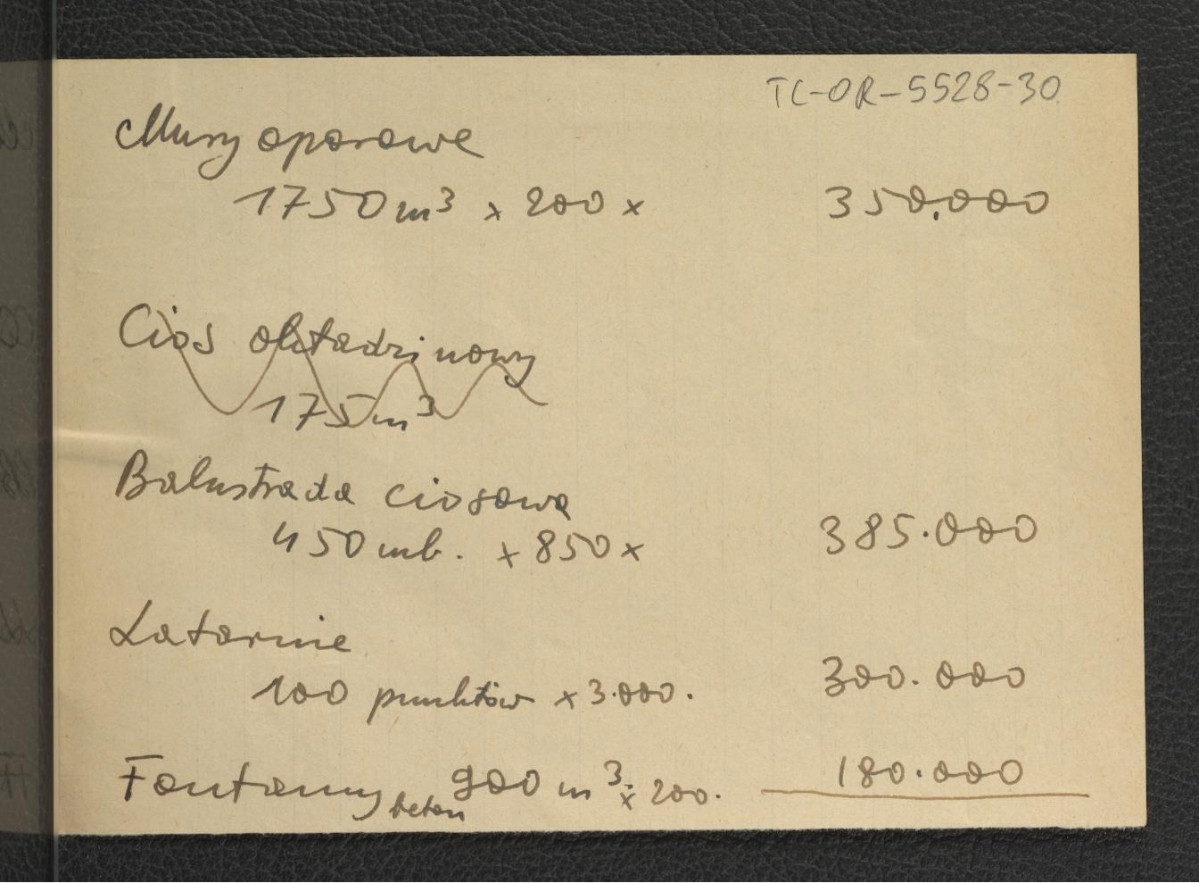 TC-OR-5528-30
Mury oporowe
1750 m³ x 200 x 350.000
Cios okładzinowy
175 m³
Balustrada ciosowa
450 mb. x 850 x 385.000
Latarnie
100 punktów x 3.000. 300.000
Fontanny beton 900 m³ x 200. 180.000